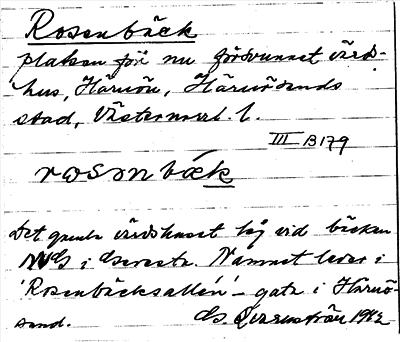 Rosenbäck
platsen för nu försvunnet värds-
hus, Härnön, Härnösands
stad, Västernorrl. l.
III B 179
rosənbæk
Det gamla värdshuset låg vid bäcken
i Namnet lever i
'Rosenbäcksallén' – gata i Härnö-
sand. 1942